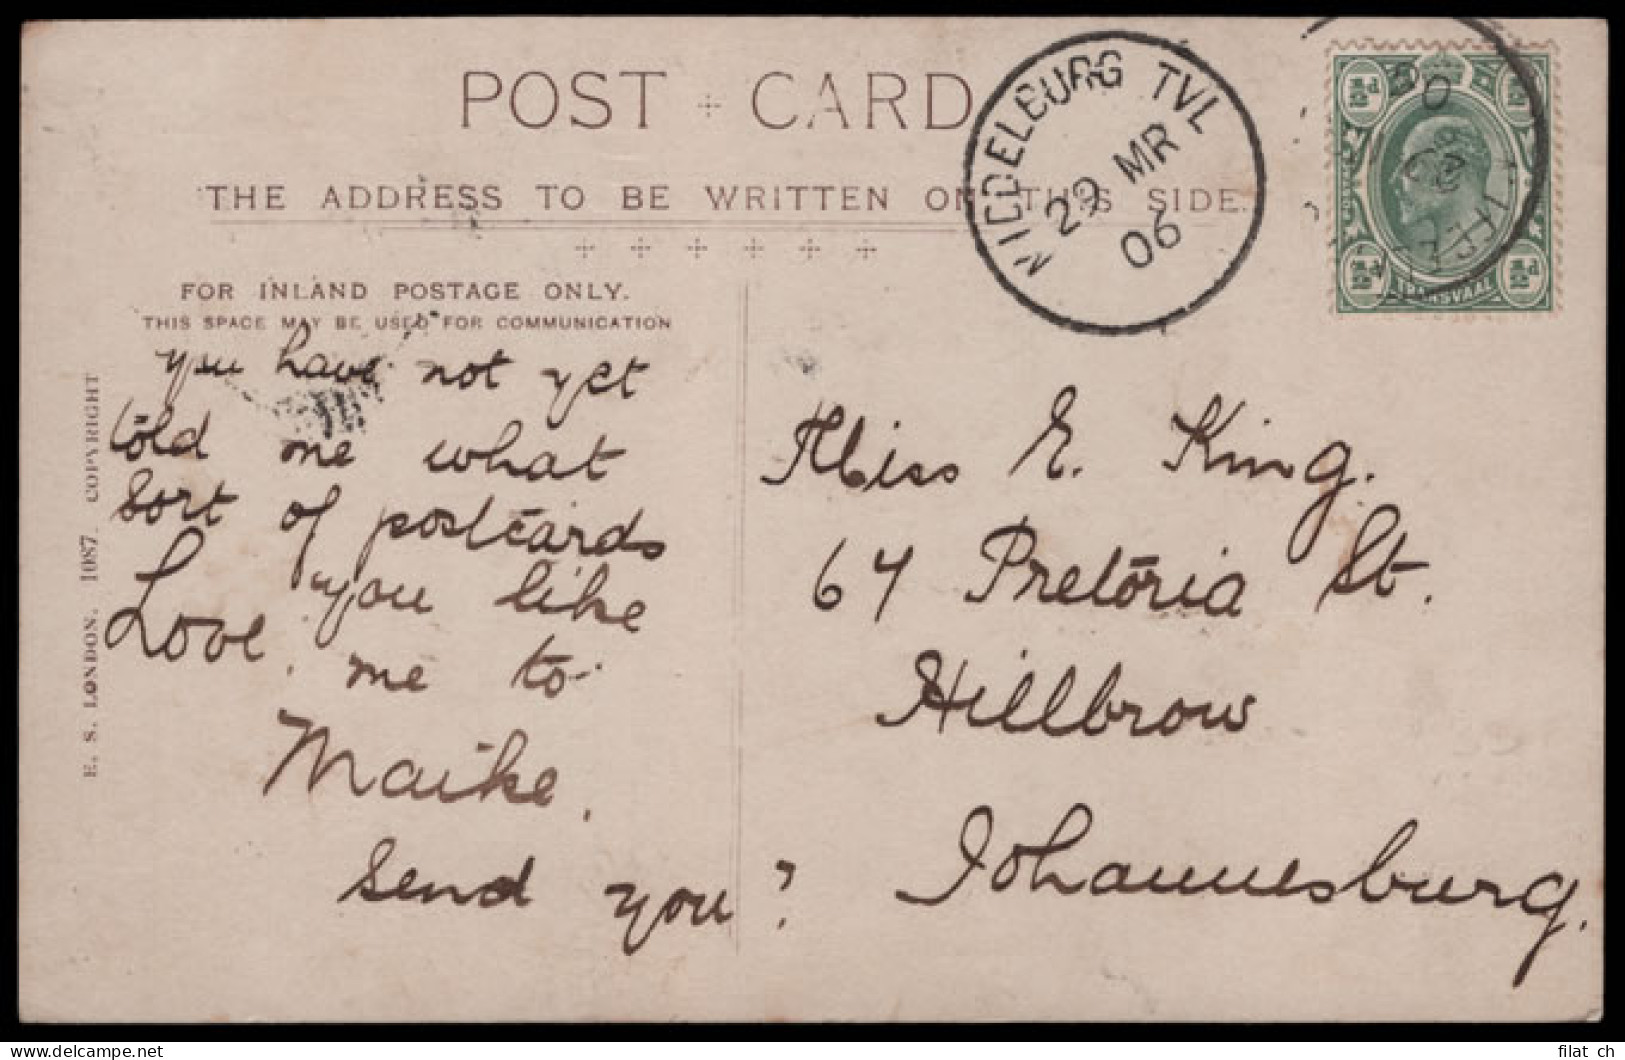 POST CARD
THE ADDRESS TO BE WRITTEN ON THIS SIDE.
FOR INLAND POSTAGE ONLY.
THIS SPACE MAY BE USED FOR COMMUNICATION
MIDDELBURG TVL
29 MR
06
TRANSVAAL
you have not yet
told me what
sort of postcards
you like
Love.
me to
Maike.
send you?
Miss E. King.
67 Pretoria St.
Hillbrow
Johannesburg.
E. S. LONDON. 1087. COPYRIGHT
filat ch